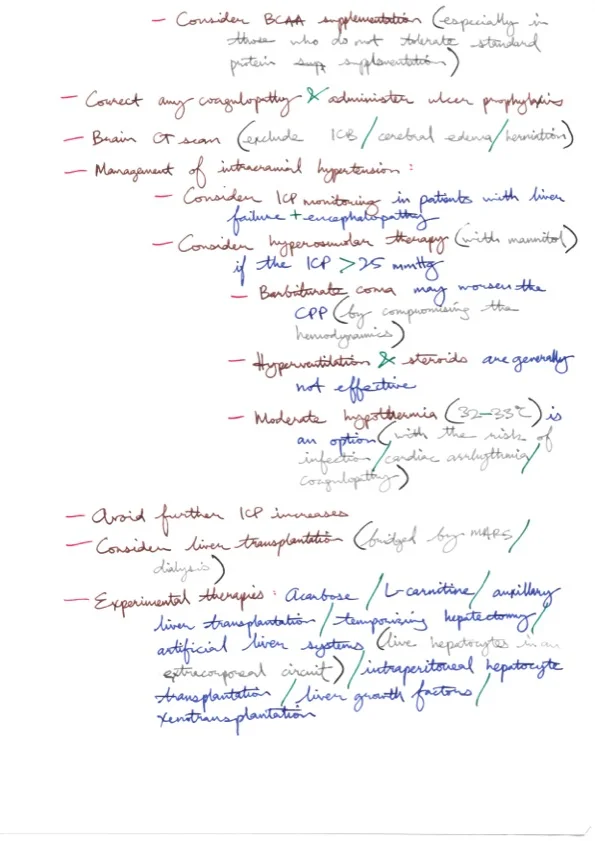 — Consider BCAA supplementation (especially in
those who do not tolerate standard
protein sup supplementation)
— Correct any coagulopathy & administer ulcer prophylaxis
— Brain CT scan (exclude ICB / cerebral edema / herniation)
— Management of intracranial hypertension :
— Consider ICP monitoring in patients with liver
failure + encephalopathy
— Consider hyperosmolar therapy (with mannitol)
if the ICP > 25 mmHg
— Barbiturate coma may worsen the
CPP (by compromising the
hemodynamics)
— Hyperventilation & steroids are generally
not effective
— Moderate hypothermia (32–33°C) is
an option (with the risk of
infection / cardiac arrhythmia /
coagulopathy)
— Avoid further ICP increases
— Consider liver transplantation (bridged by MARS /
dialysis)
— Experimental therapies : Acarbose / L-carnitine / auxillary
liver transplantation / temporizing hepatectomy /
artificial liver systems (live hepatocytes in an
extracorporeal circuit) / intraperitoneal hepatocyte
transplantation / liver growth factors /
xenotransplantation